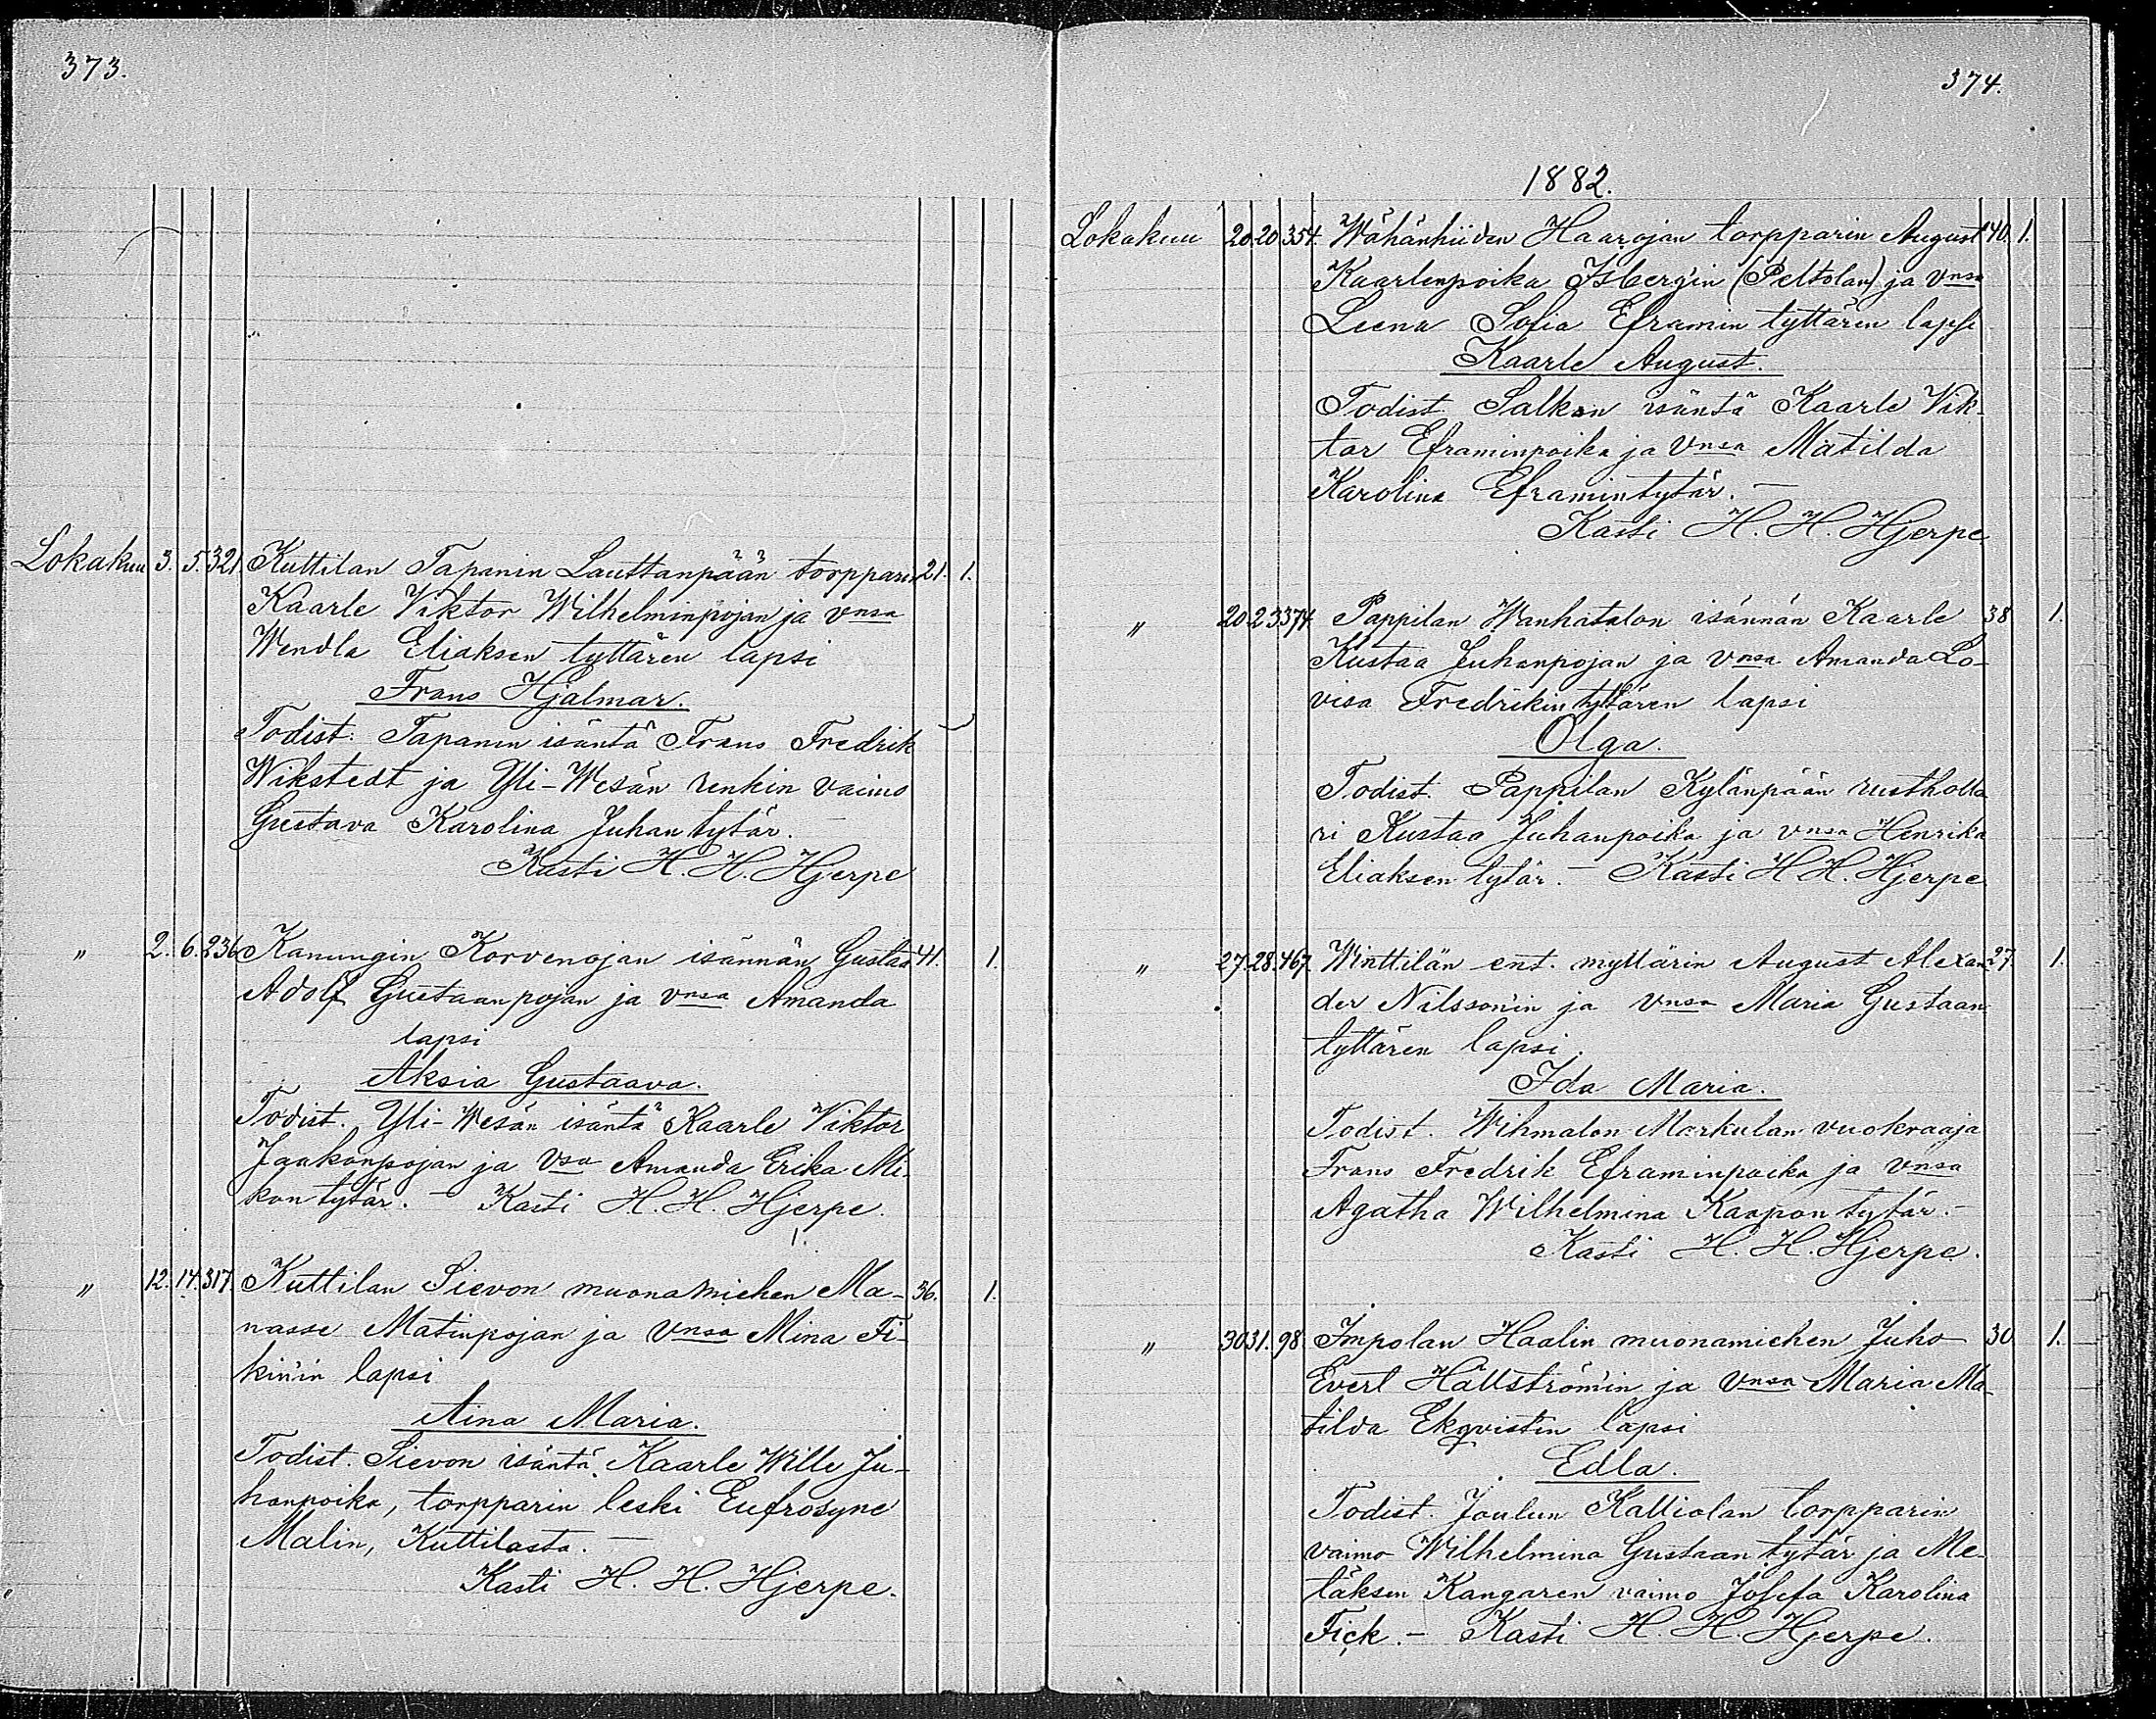 373.
Lokakuu 3. 5. 321. Kuttilan Tapanin Lauttanpään torpparin 21. 1.
Kaarle Viktor Wilhelminpojan ja vnsa
Wendla Eliaksen tyttären lapsi
Frans Hjalmar.
Todist. Tapanin isäntä Frans Fredrik
Wikstedt ja Yli-Wesän renkin vaimo
Gustava Karolina Juhan tytär. —
Kasti H. H. Hjerpe
" 2. 6. 236 Kanungin Korvenojan isännän Gustav 41. 1.
Adolf Gustaanpojan ja vnsa Amanda
lapsi
Aksia Gustaava.
Todist. Yli-Wesän isäntä Kaarle Viktor
Jaakonpojan ja vsa Amanda Erika Mi-
kon tytär. — Kasti H. H. Hjerpe.
" 12. 14. 317. Kuttilan Sievon muonamiehen Ma- 36. 1.
nasse Matinpojan ja vnsa Mina Fi-
kin'in lapsi
Aina Maria.
Todist. Sievon isäntä Kaarle Wille Ju-
hanpoika, torpparin leski Eufrosyne
Malin, Kuttilasta. —
Kasti H. H. Hjerpe.
374.
1882.
Lokakuu 20. 20. 354. Wähänhiiden Haarojan torpparin August 40. 1.
Kaarlenpoika Isbergin (Peltolan) ja vnsa
Leena Sofia Eframin tyttären lapsi
Kaarle August.
Todist. Salkon isäntä Kaarle Vik-
tor Eframinpoika ja vnsa Matilda
Karolina Eframintytär. —
Kasti H. H. Hjerpe.
" 20. 23. 374. Pappilan Wanhatalon isännän Kaarle 38 1.
Kustaa Juhanpojan ja vnsa Amanda Lo-
visa Fredrikin tyttären lapsi
Olga.
Todist. Pappilan Kylänpään rustholla
ri Kustaa Juhanpoika ja vnsa Henrika
Eliaksen tytär. — Kasti H. H. Hjerpe
" 27. 28. 467. Winttilän ent. myllärin August Alexan- 27. 1.
der Nilsson'in ja vnsa Maria Gustaan
tyttären lapsi.
Ida Maria.
Todist. Wihmalon Markulan vuokraaja
Frans Fredrik Eframinpoika ja vnsa
Agatha Wilhelmina Kaapon tytär. —
Kasti H. H. Hjerpe.
" 30 31. 98. Impolan Haalin muonamiehen Juho 30. 1.
Evert Hällström'in ja vnsa Maria Ma-
tilda Ekqvistin lapsi
Edla.
Todist. Joulun Kalliolan torpparin
vaimo Wilhelmina Gustaan tytär ja Me-
täksen Kangaren vaimo Josefa Karolina
Fick. — Kasti H. H. Hjerpe.